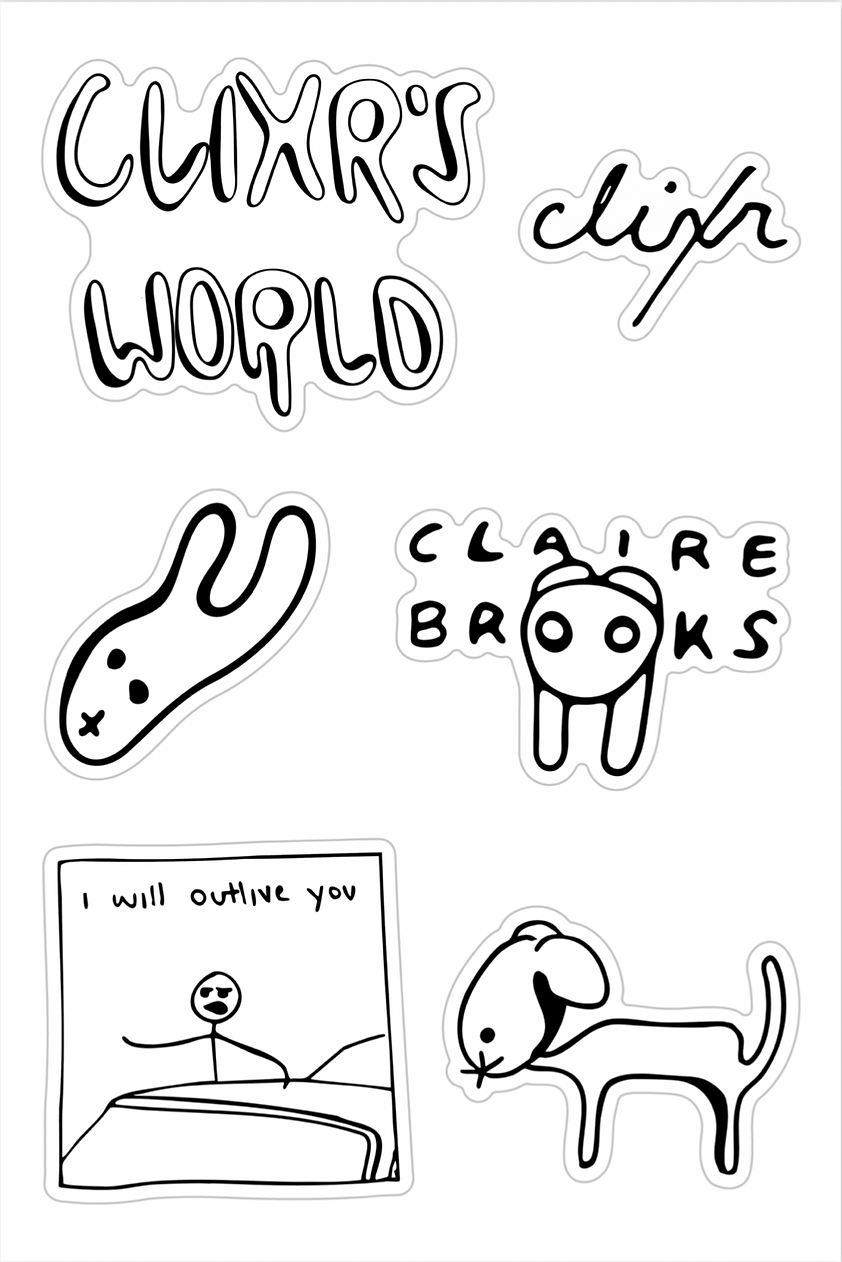 CLIXR'S
WORLD
clixr
CLAIRE
BROOKS
I will outlive you